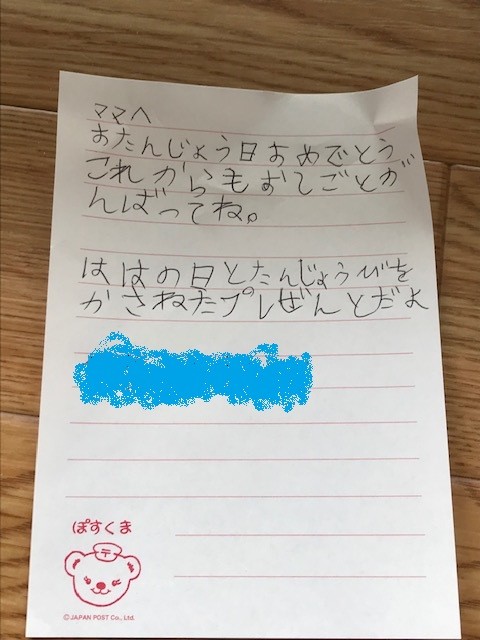 ママへ
おたんじょう日おめでとう
これからもおしごとが
んばってね。
ははの日とたんじょうびを
かさねたプレぜんとだよ
ぽすくま
〒
©JAPAN POST Co., Ltd.